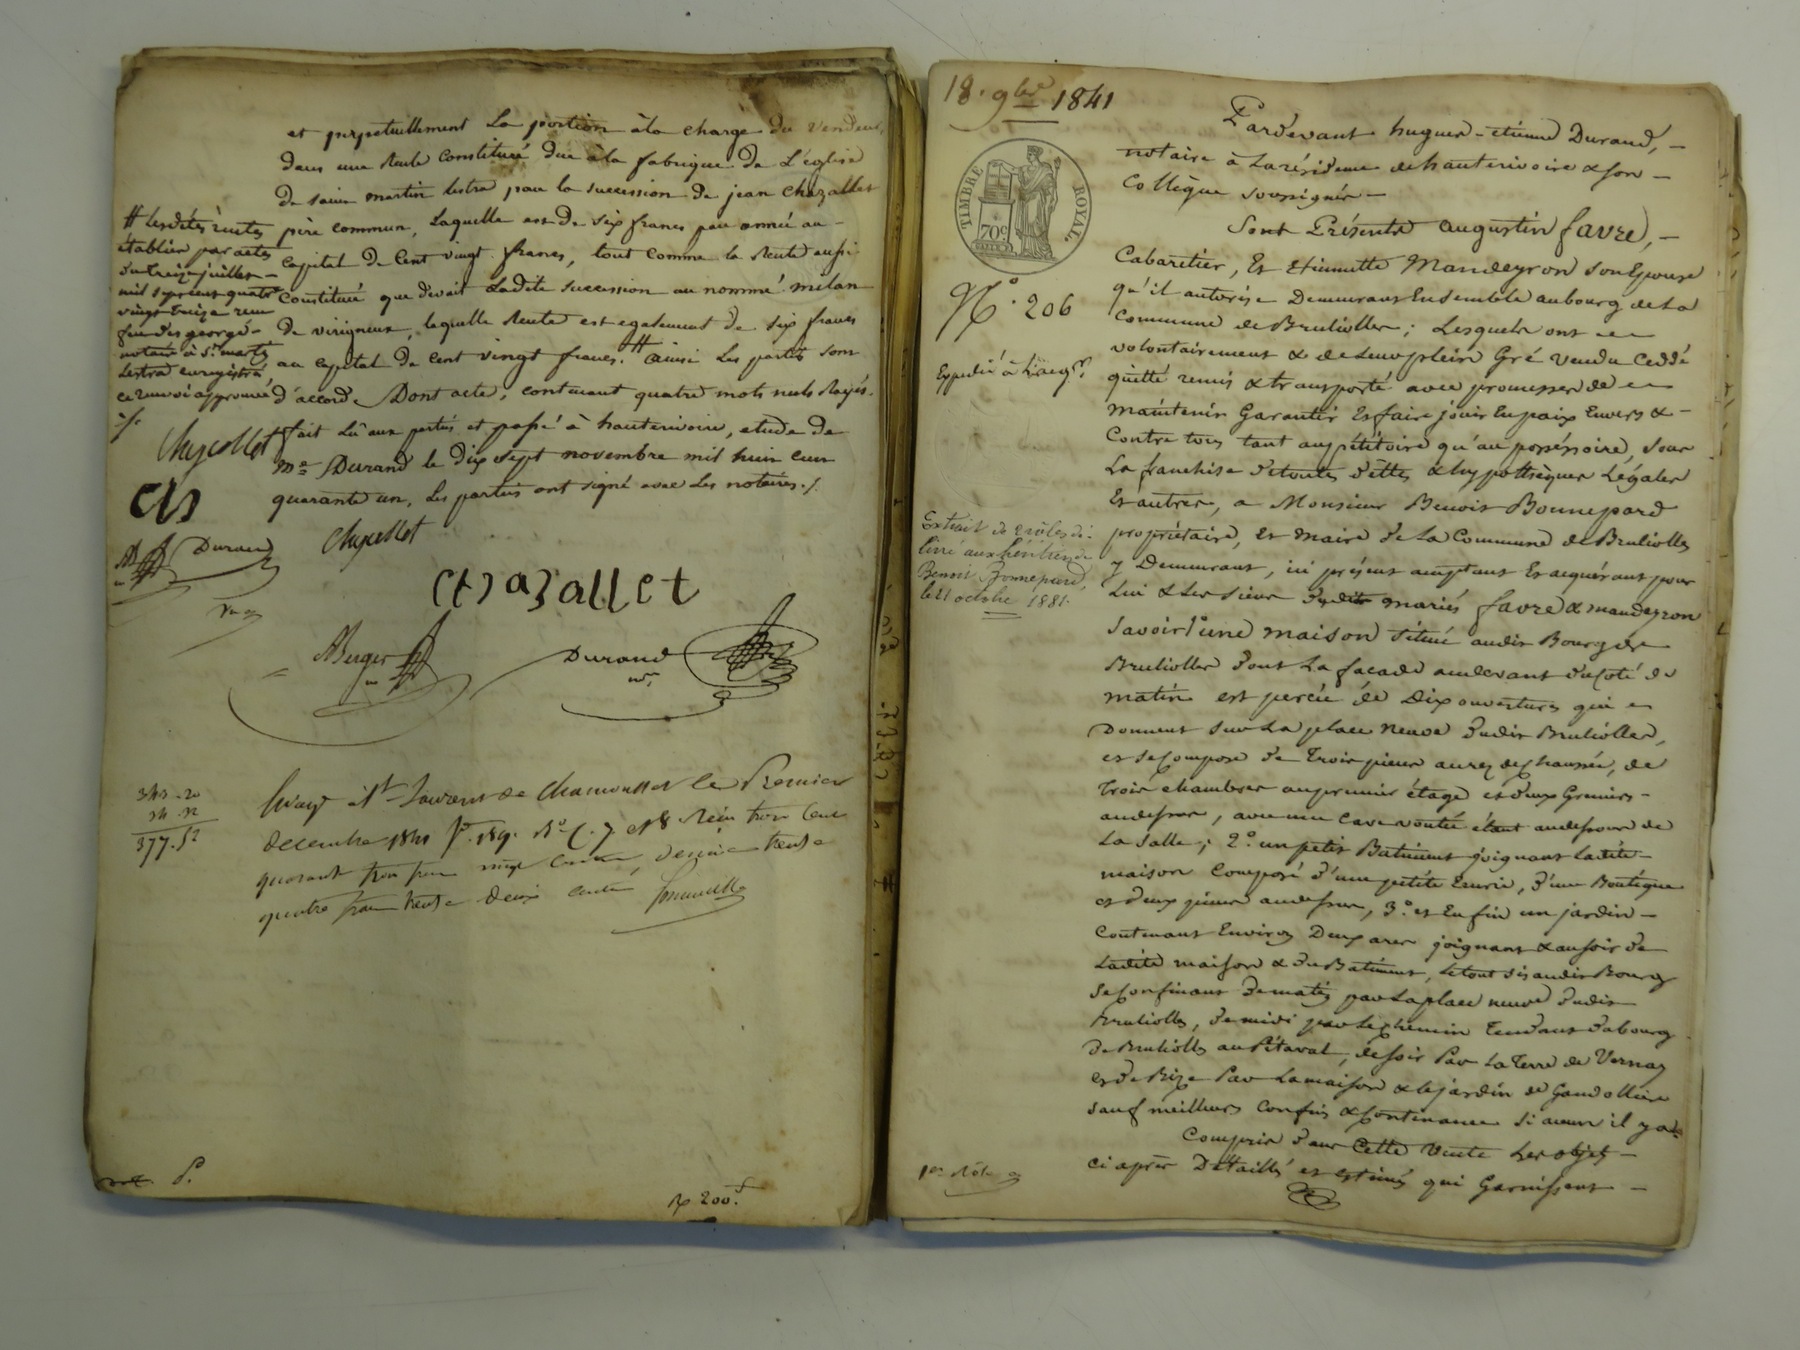 et perpetuellement La portion à la charge du vendeur,
dans une Rente Constituée due à la fabrique de L'église
de saint martin lestra par la succession de jean Chazallet
père commun, Laquelle est de six francs par année au -
capital de Cent vingt francs, tout comme la Rente aussi
Constituée que devait Ladite succession au nommé milan
de virigneux, laquelle Rente est egalement de six francs
au capital de cent vingt francs. # ainsi Les parties sont
d'accord. Dont acte, contenant quatre mots nuls Rayés.
fait Lû aux parties et passé à hauterivoire, etude de
Me Durand le dix sept novembre mil huit cent
quarante un, Les parties ont signé avec Les notaires ./.
# lesdites rentes
établies par actes
du treize juillet -
mil sept cent quatre
vingt treize reçu
george -
notaire à St martin
Lestra enregistré
ce renvoi approuvé
./.
Chazallet
Durand
Chazallet
chazallet
ABerger
Durand
nre
343 . 20
34 . 32
377 . 52
à St Laurent de Chamousset le Premier
decembre 1841 fo. 189. Ro C. 7 et 8 Reçu trois cent
quarante trois francs vingt centimes, décime trente
quatre francs trente deux centimes
200 f
18. 9bre 1841
TIMBRE ROYAL.
70c
No. 206
Expédié à L'acqr.
Extrait de rôles dé-
livré aux héritiers de
Benoit Bonnepard,
le 21 octobre 1881.
1er Rôle
Pardevant hugues-etienne Durand, -
notaire à La résidence de hauterivoire & son -
Collègue soussignés -
Sont Présents augustin favre, -
Cabaretier, Et Etiennette Mandeyron son Epouse
qu'il autorise Demeurant Ensemble au bourg de La
Commune de Brulioller ; Lesquels ont
volontairement & de Leur plein Gré vendu Ceddé
quitté remis & transporté avec promesse de
maintenir Garantir Et faire jouir En paix Envers & -
Contre tous tant au pétitoire qu'au possessoire, sous
La franchise de toutes dettes & hypothèques Légales
Et autres, a Monsieur Benoit Bonnepard
propriétaire, et Maire de La Commune de Bruliolles
y Demeurant, ici présent acceptant Et acquérant pour
Lui & Les siens desdits mariés favre & mandeyron
Savoir 1o une maison située audit Bourg de
Brulioller dont La façade au devant du Coté de
matin est percée de Dix ouvertures qui
Donnent sur La place Neuve dudit Brulioller,
et se Compose de Trois pièces au rez de chaussée, de
trois chambres au premier étage et deux Greniers -
au dessus, avec une Cave voutée étant au dessous de
La Salle ; 2o. un petit Batiment joignant Ladite -
maison Composé d'une petite Ecurie, d'une Boutique
et deux pièces au dessus, 3o. et Enfin un jardin -
Contenant Environ Deux ares joignant & au soir de
Ladite maison & du Batiment, Le tout sis audit Bourg
Se Confinant de matin par La place neuve dudit
Bruliolles, de midi par Le chemin Tendant du bourg
De Bruliolles au Pétaval, de soir Par La Terre de Vernay
et de Bize Par La maison & Le jardin de Gandolliere
sauf meilleurs Confins & Contenance si aucun il y a.
Compris dans Cette Vente Les objets -
ci après Détaillés et estimés qui Garnissent -